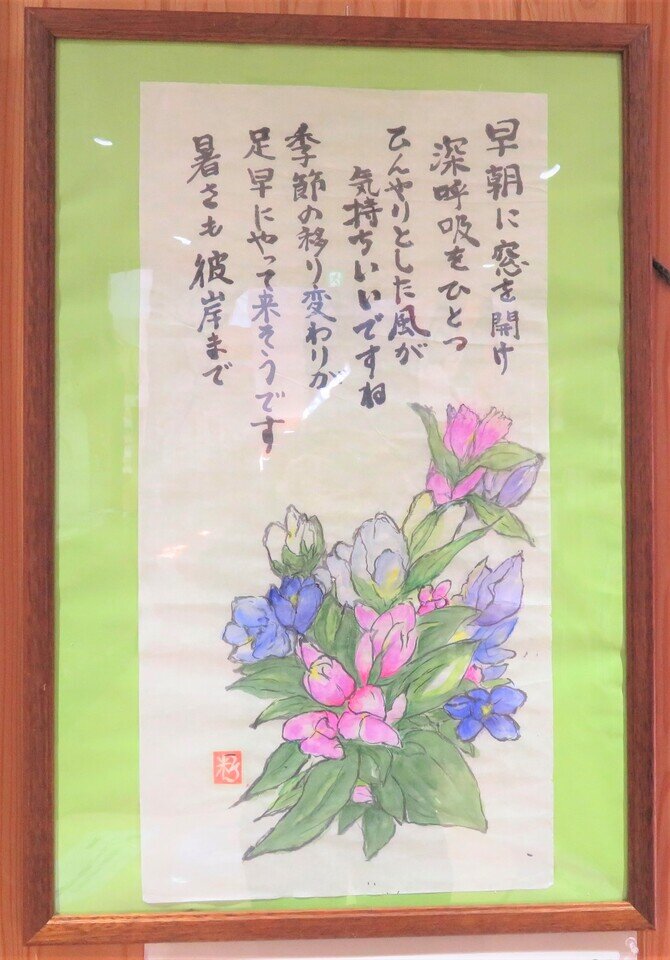 早朝に窓を開け
深呼吸をひとつ
ひんやりとした風が
気持ちいいですね
季節の移り変わりが
足早にやって来そうです
暑さも彼岸まで